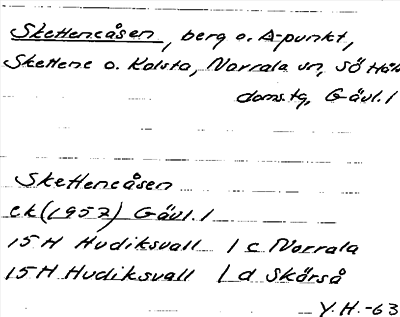 Sketteneåsen, berg o. A-punkt,
Skettene o. Kolsta, Norrala sn, Sö Häls
doms.tg, Gävl. l
Sketteneåsen
ek (1957) Gävl. l
15H Hudiksvall 1 c Norrala
15H Hudiksvall 1 d Skärså
Y.H. -63